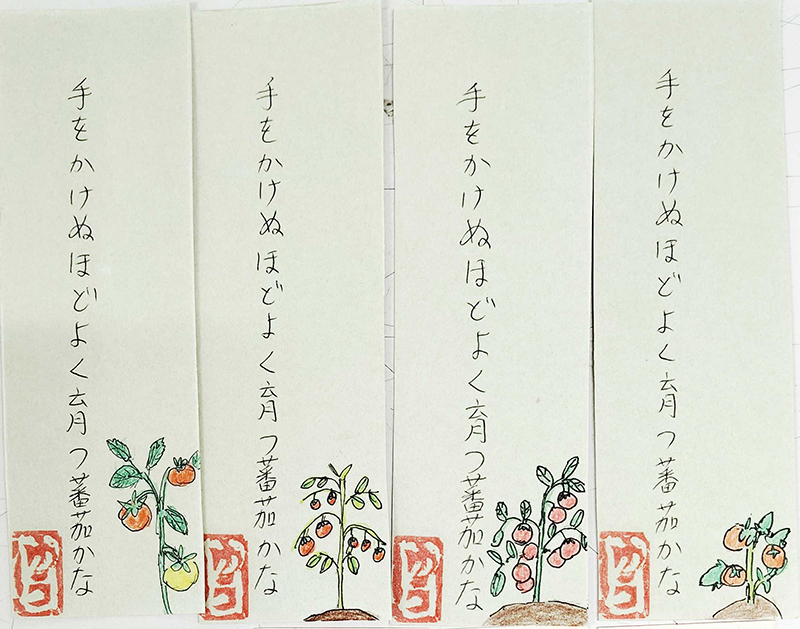 手をかけぬほどよく育つ蕃茄かな
手をかけぬほどよく育つ蕃茄かな
手をかけぬほどよく育つ蕃茄かな
手をかけぬほどよく育つ蕃茄かな